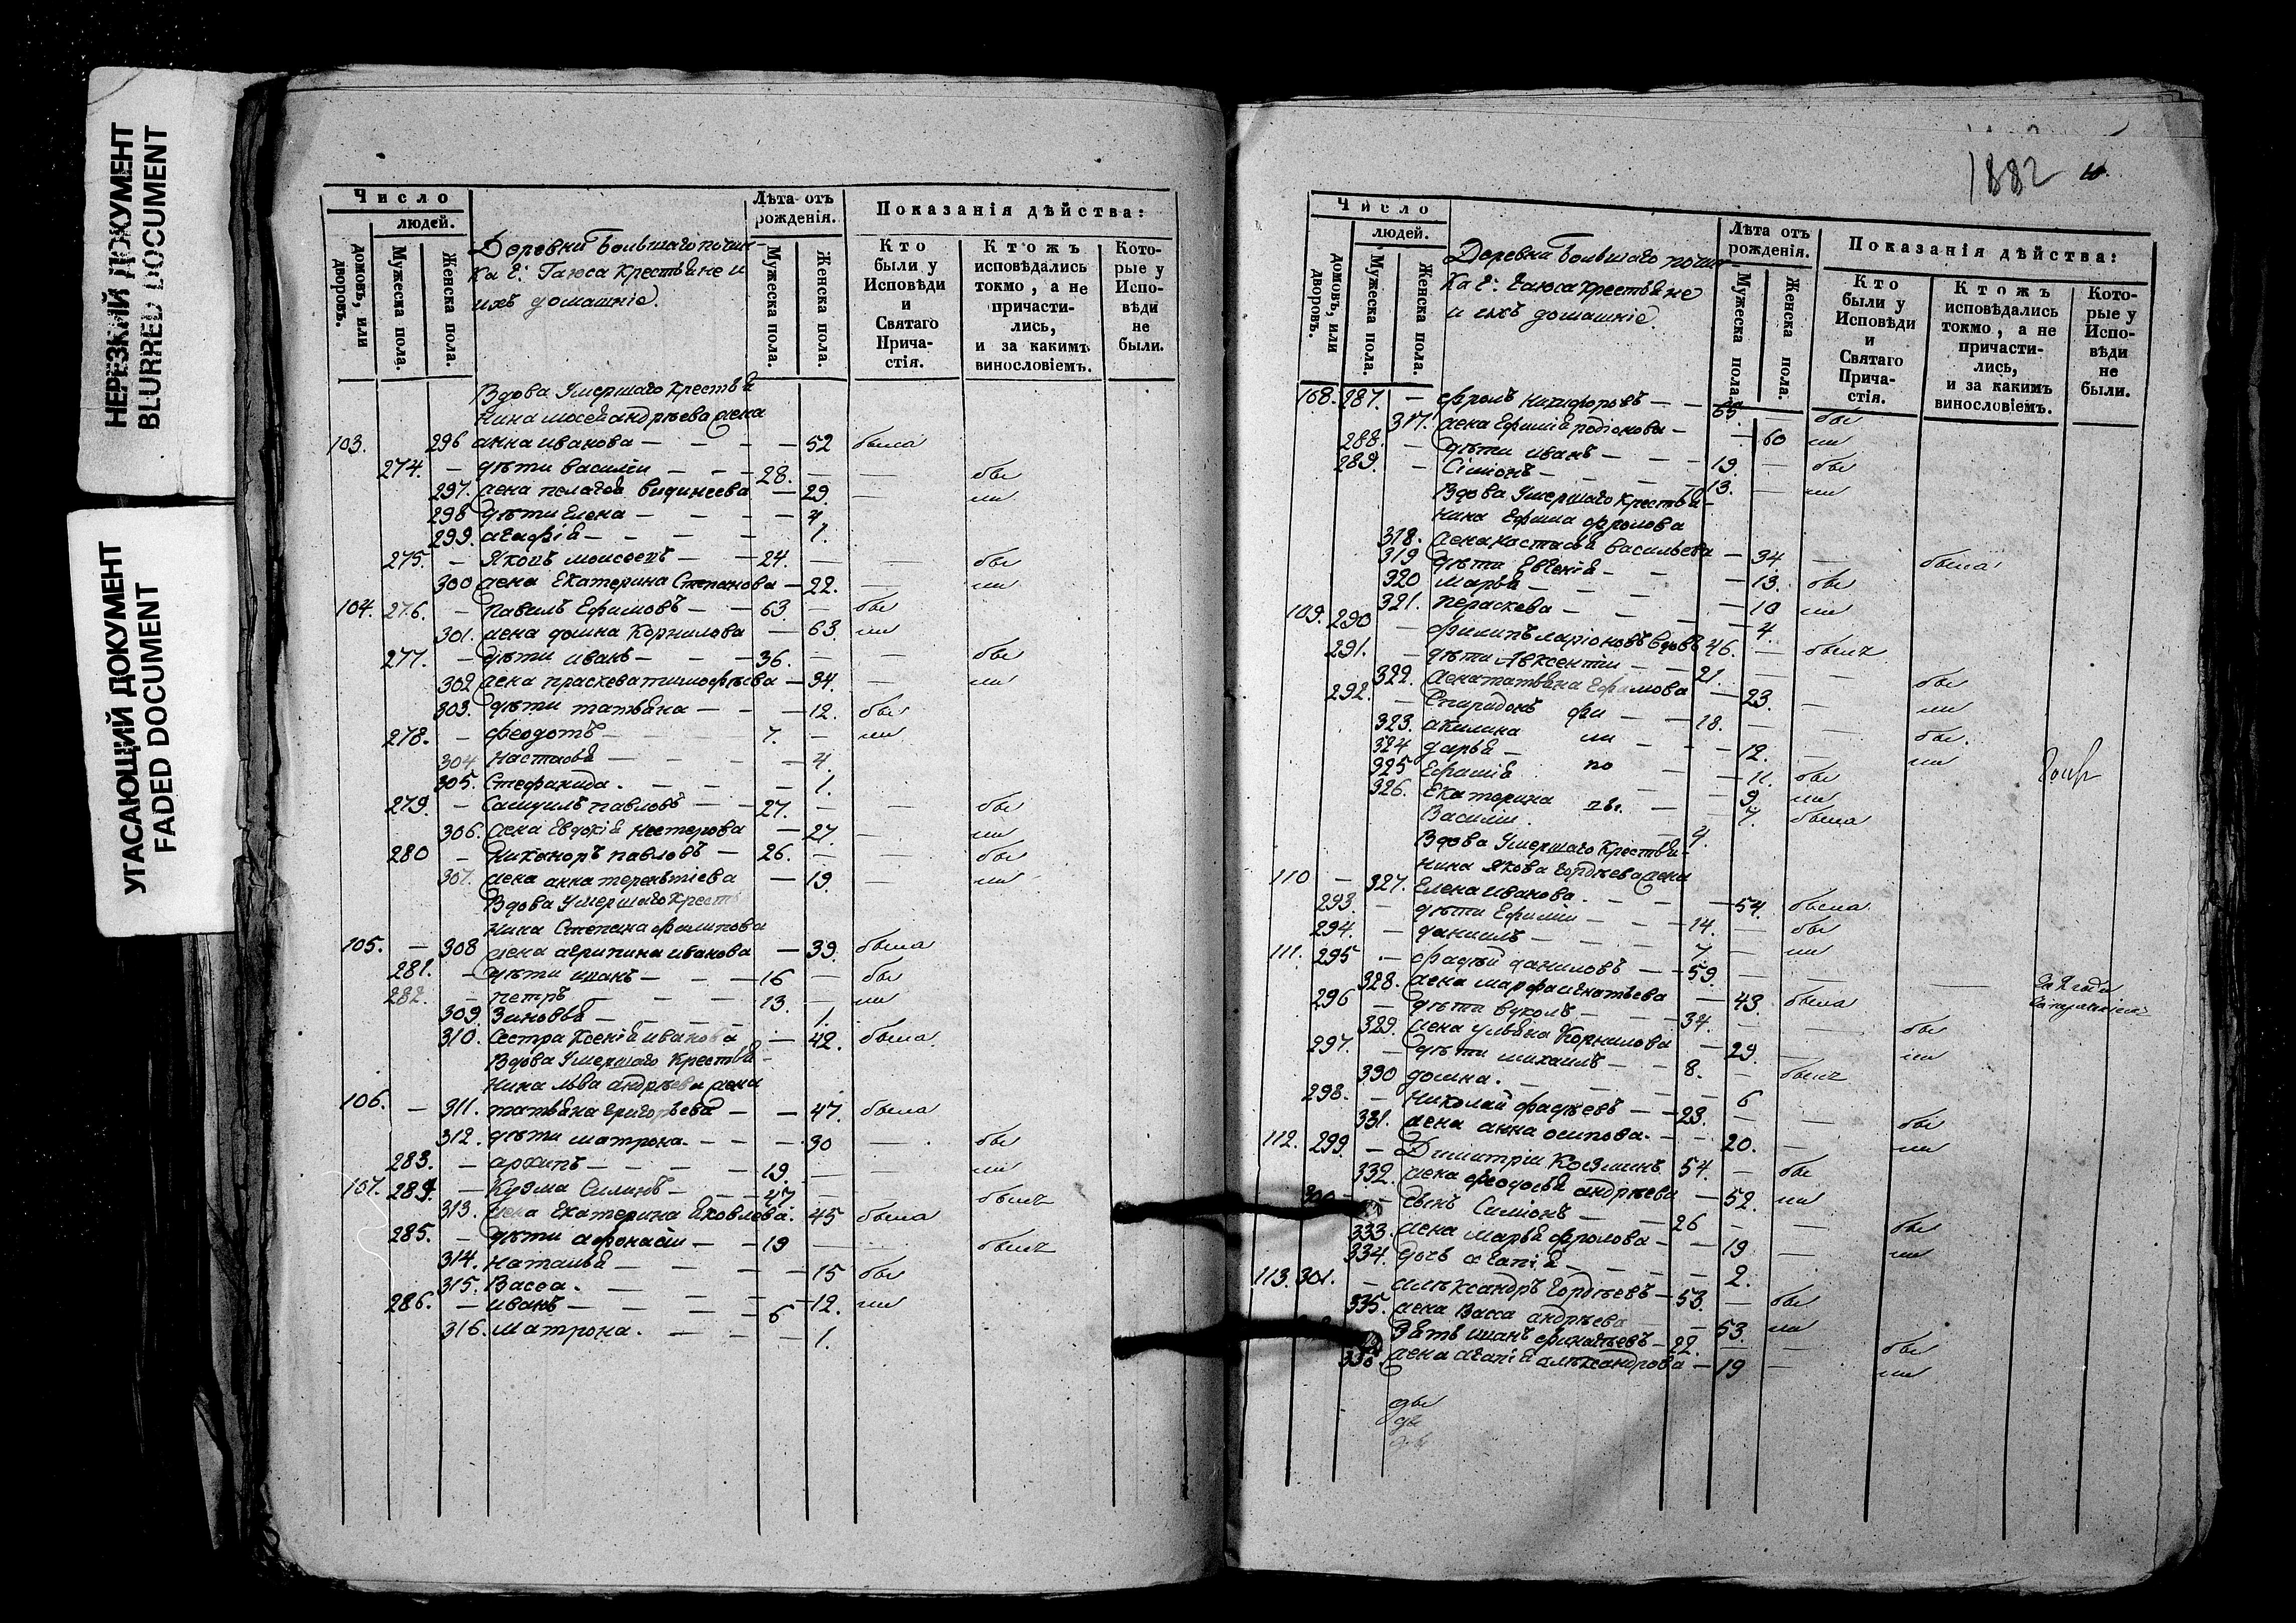 НЕРЕЗКИЙ ДОКУМЕНТ
BLURRED DOCUMENT
УГАСАЮЩИЙ ДОКУМЕНТ
FADED DOCUMENT
Число
людей.
домовъ, или дворовъ.
Мужеска пола.
Женска пола.
Деревни Большаго почин-
ка
Гаюса крестьяне и
ихъ домашніе.
Лѣта отъ рожденія.
Мужеска пола.
Женска пола.
Показанія дѣйства:
Кто были у Исповѣди и Святаго Прича-стія.
Ктожъ исповѣдались токмо, а не причасти-лись, и за какимъ винословіемъ.
Кото-рые у Испо-вѣди не были.
Вдова Умершаго крестья
нина андрѣева жена
103. 296 анна иванова — — — — 52 была
274. — дѣти василій — — — 28. — — бы
297. жена — 29. — ли
298 дѣти Елена — — — — 4.
299. агафія — — — — 1.
275. — Яковъ моисеевъ — — 24. — — бы
300 жена Екатерина Степанова — 22. — ли
104. 276. — павилъ Ефимовъ — — 63. — бы
301. жена домна Корнилова — 63. ли
277. — дѣти иванъ — — — 36. — — бы
302 жена праскева тимофѣева — 34. — ли
303. дѣти татьяна — — — 12. бы
278. — феодотъ — — — 7. — ли
304 настасья — — — — 4.
305. Стефанида. — — — 1.
279. — Самуилъ павловъ — — 27. — — бы
306. жена Евдокія нестерова — 27. — ли
280 — никаноръ павловъ — 26. — — бы
307. жена анна терентіева — 19. — ли
Вдова Умершаго Кресть
нина Степана филипова
105. — 308 жена агрипина иванова — 39. была
281. — дѣти иванъ — — 16 — бы
282. — петръ — — — 13. — ли
309. Зиновья — — — — 1.
310. Сестра Ксенія иванова — 42. была
Вдова Умершаго Крестья-
нина льва андрѣева жена
106. — 311. татьяна григорьева — — 47. была
312. дѣти матрона. — — — 30 — бы
283. — архипъ — — — — 19. — — ли
107. 284. — Кузма Силинъ — — — 47. —
313. жена Екатерина Яковлева. 45 была
285. — дѣти афонасій — — 19 —
314. наталья — — — — 15 бы
315. Васса. — — — 12. ли
286. — иванъ — — — — 6
316. матрона. — — — 1.
1882
Число
людей.
домовъ, или дворовъ.
Мужеска пола.
Женска пола.
Деревни Большаго почин-
ка
Гаюса крестьяне
и ихъ домашніе.
Лѣта отъ рожденія.
Мужеска пола.
Женска пола.
Показанія дѣйства:
Кто были у Исповѣди и Святаго Прича-стія.
Ктожъ исповѣдались токмо, а не причасти-лись, и за какимъ винословіемъ.
Кото-рые у Испо-вѣди не были.
287. — фролъ никифоровъ — — — бы
317. жена Ефимія родіонова — — 60 ли
288. — дѣти иванъ — — — 19. — бы
289. — Сіміонъ — 13. — ли
Вдова Умершаго Крестья-
нина Ефима фролова
318. жена настасья васильева — 34. — была
319 дѣти Евгенія — — — 13. бы
320 марья — — — 10 ли
321. пераскева — — — 4.
109. 290 — филипъ ларіоновъ вдовъ 46. —
291. — дѣти Авксентій — — 21. — — бы
322. жена татьяна Ефимова — 23. — ли
292. — Спиридонъ фи — — 18. — — бы.
323. акилина ли — — 12. — ли
324 дарья — по — — 11. бы
325 Ефимія — — 9. ли
326. Екатерина — 7. была
Василій. — 4.
Вдова Умершаго Крестья-
нина Якова Гордѣева жена
110 — 327. Елена иванова. — — — 54. была
293. — дѣти Ефимій — — — 14. — бы
294. — даниилъ — — — 7 — ли
111. 295 — фадѣй даниловъ — — 59. — — За 2 года
328. жена марфа игнатьева — 43. была
296 — дѣти вуколъ — — — 34. — — бы
329. жена ульяна Корнилова — 29. — ли
297. — дѣти михаилъ — — 8. —
330 домна. — — — — 6
298. — николай фадѣевъ — — 23. — — бы
331. жена анна осипова. — — 20. — ли
112. 299. — Димитрій Козминъ 54. — бы
332. жена феодосья андрѣева — 52. ли
300 — сынъ Симіонъ — — 26 — — бы
333. жена марья фролова — — 19 — ли
334. дочь агапія — — — — 2.
113. 301. — алѣксандръ Гордѣевъ — 53. — бы
335. жена Васса андрѣева — 53. ли
Зять иванъ — 22. — — бы
336. жена агапія алѣксандрова — 19 — ли